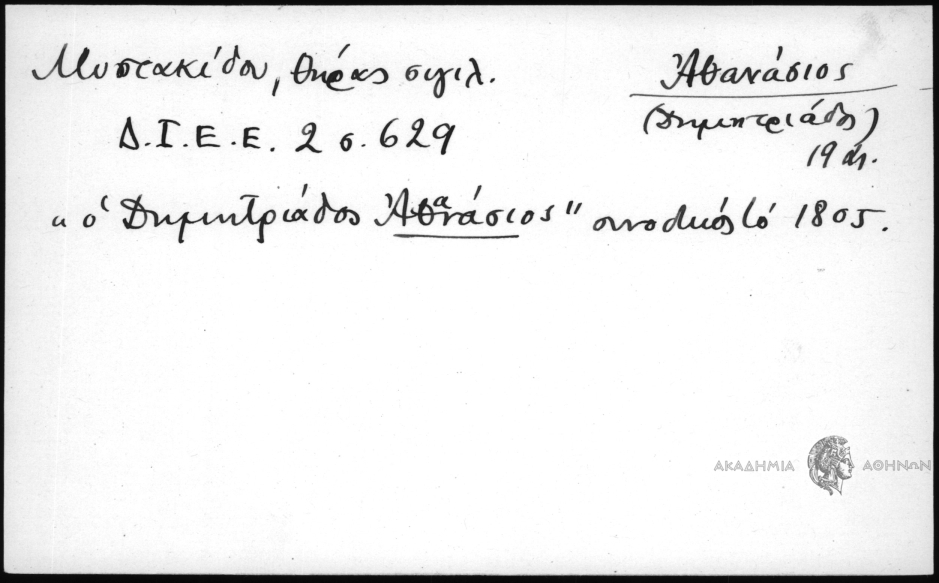 Μυστακίδου, θήρας σιγιλ.
Δ.Ι.Ε.Ε. 2 σ. 629
Ἀθανάσιος
(Δημητριάδος)
19 αἰ.
"ὁ Δημητριάδος Ἀθανάσιος" συνοδικός τό 1805.
ΑΚΑΔΗΜΙΑ ΑΘΗΝΩΝ